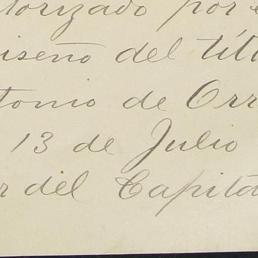 torizado por e
iseño del títu
tonio de Orr
13 de Julio
r del Capitá